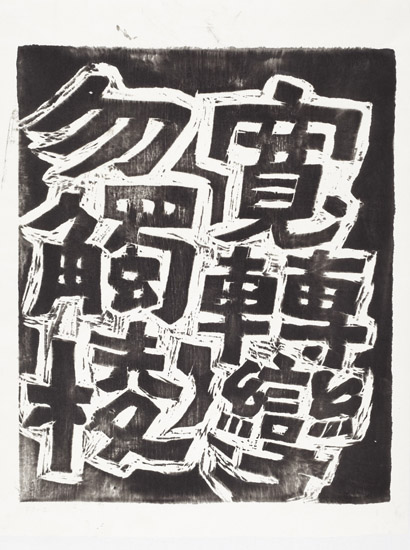 寬轉彎
勿觸棱